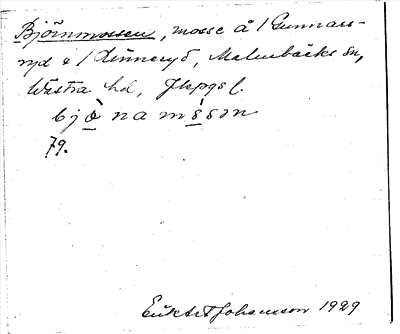 Björnmossen, mosse å 1 Gunnars-
ryd & 1 Linneryd, Malmbäcks sn,
Västra hd, Jkpgs l.
bjö̱̀namòsən
79.
Johansson 1929